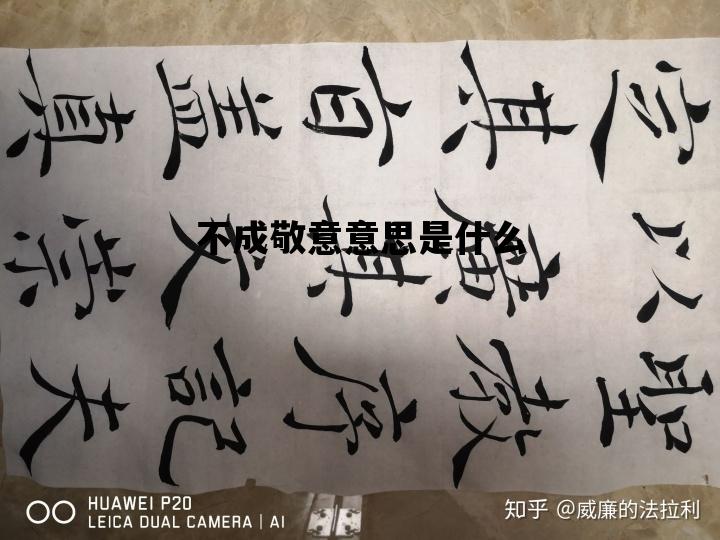 聖教序記夫
以廣其文崇
定其旨盖真
不成敬意意思是什么
HUAWEI P20
LEICA DUAL CAMERA | AI
知乎 @威廉的法拉利